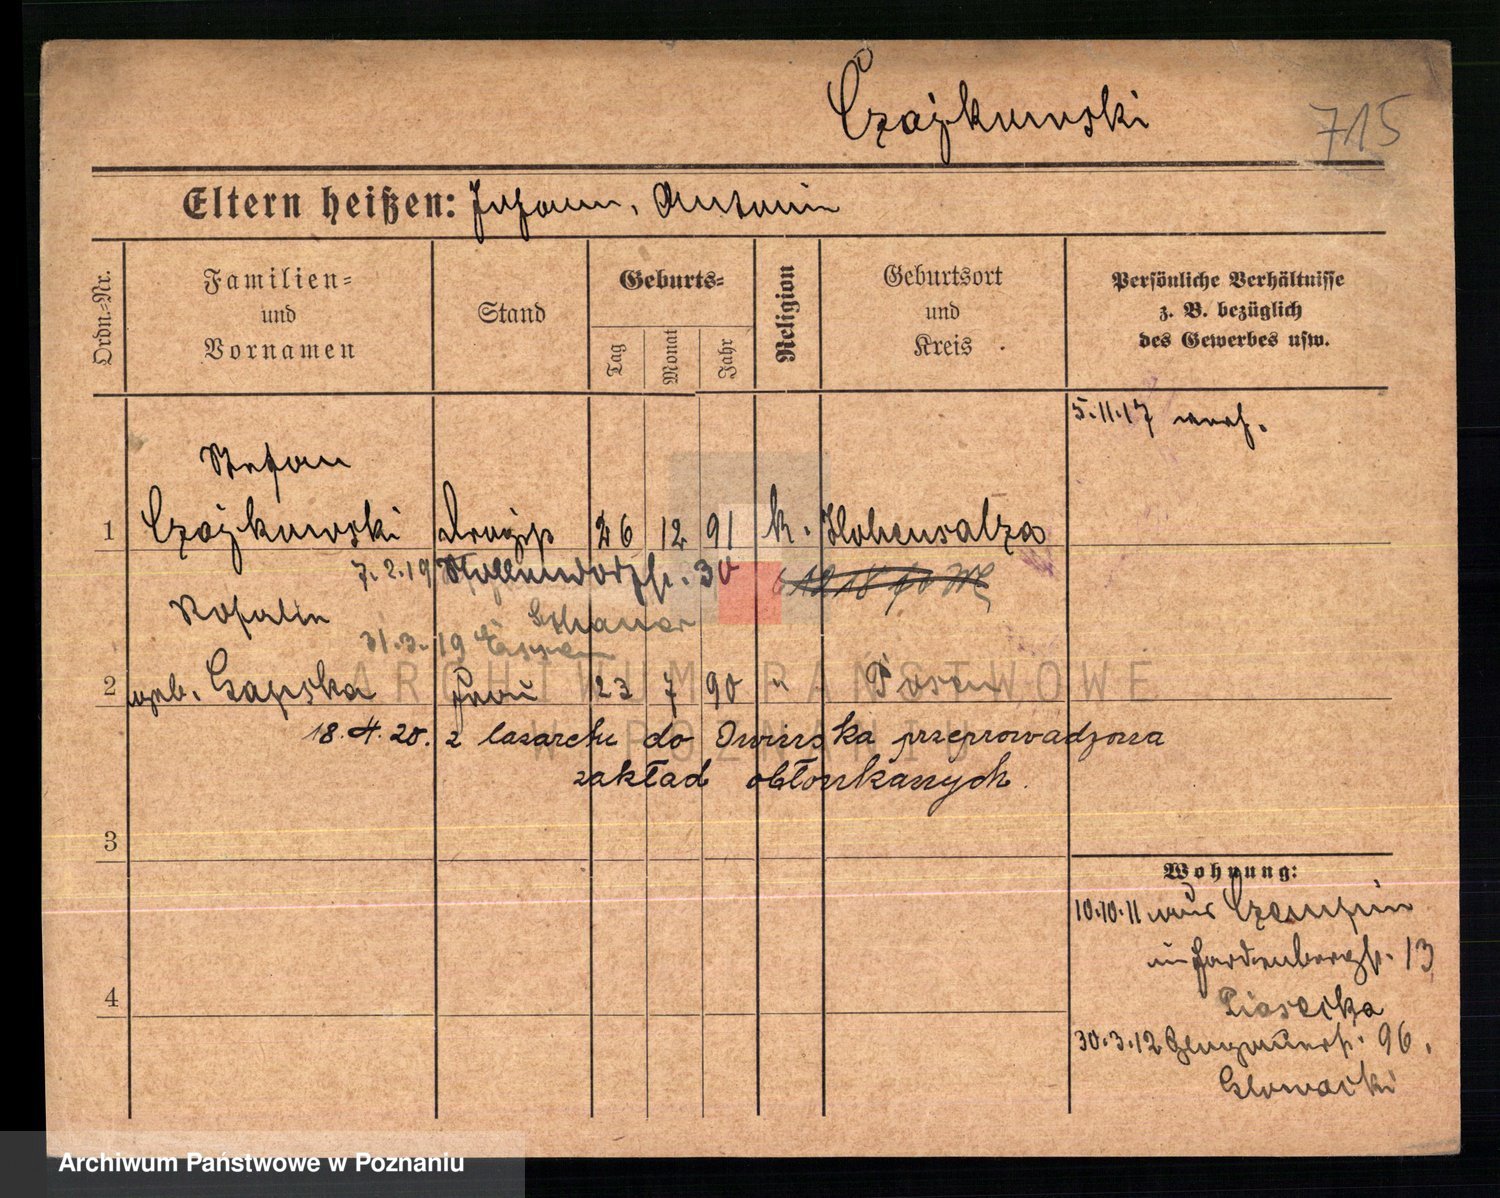 Czajkowski
715
Eltern heißen: Johann, Antonie
Ordn.-Nr.
Familien-
und
Vornamen
Stand
Geburts-
Tag
Monat
Jahr
Religion
Geburtsort
und
Kreis
Persönliche Verhältnisse
z. B. bezüglich
des Gewerbes usw.
5.11.17 verh.
Stefan
1 Czajkowski 26 12 91 k. Hohensalza
7.2.19 30
Rosalie
31.3.19 Essen
2 geb. Frau 23 7 90 " Posen
18.4.20. z lazaretu do Owinska przeprowadzona
zakład obłonkanych.
3
4
Wohnung:
10.10.11 aus Czempin
in Hardenbergstr. 13
Piasecka
30.3.12 96.
Glowacki
ARCHIWUM PAŃSTWOWE
W POZNANIU
Archiwum Państwowe w Poznaniu